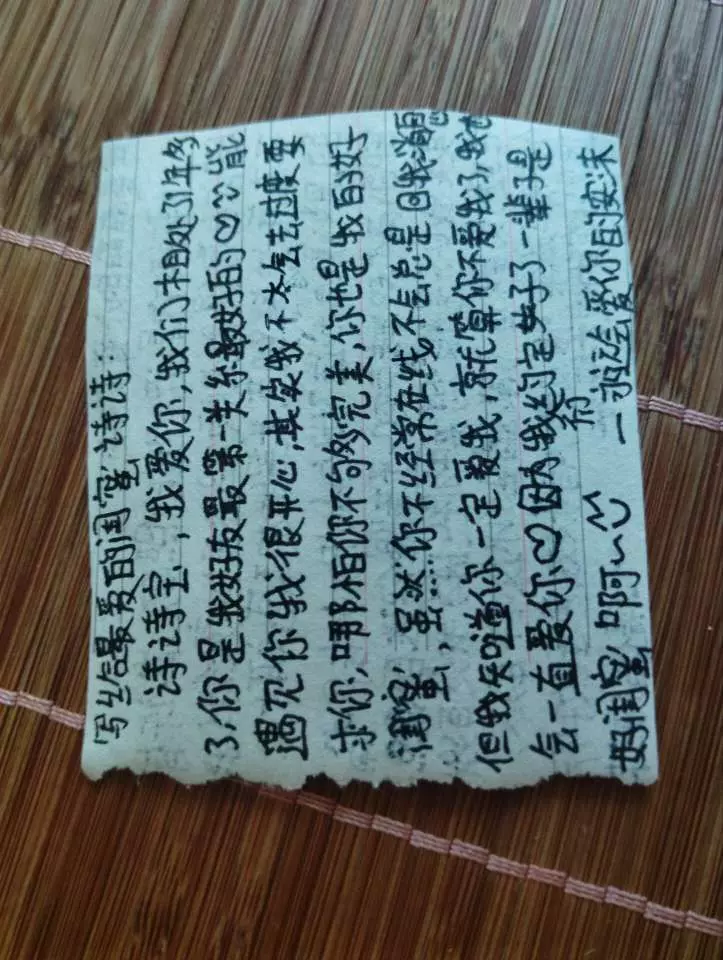 写给最爱的闺蜜诗诗：
诗诗宝，我爱你，我们相处了1年多
了，你是我好友最第一关系最好的♡♡能
遇见你我很开心，其实我不太会去过度要
求你，哪怕你不够完美，你也是我的好
闺蜜，虽然……你不经常在线不会总是回我消息
但我知道你一定爱我，就算你不爱我了，我也
会一直爱你♡因为我们约定好了一辈子是
好闺蜜啊~ 一永远会爱你的安沫